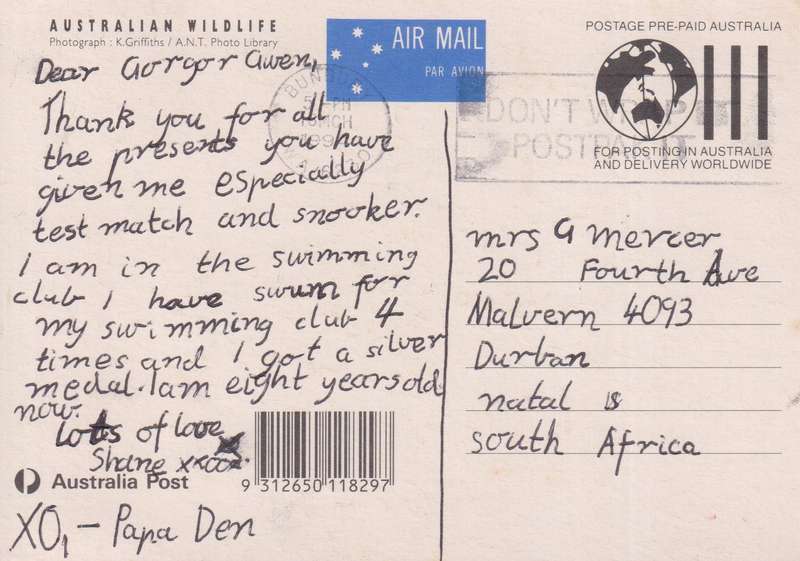 AUSTRALIAN WILDLIFE
Photograph : K.Griffiths / A.N.T. Photo Library
Dear Gorgor Gwen,
Thank you for all
the presents you have
given me especially
test match and snooker.
I am in the swimming
club I have swum for
my swimming club 4
times and I got a silver
medal. I am eight years old
now.
lots of love
Shane xxoo
Australia Post
9 312650 118297
XO, - Papa Den
AIR MAIL
PAR AVION
POSTAGE PRE-PAID AUSTRALIA
DON'T WRAP
POSTPAK IT
FOR POSTING IN AUSTRALIA
AND DELIVERY WORLDWIDE
mrs G mercer
20 Fourth Ave
Malvern 4093
Durban
natal
south Africa